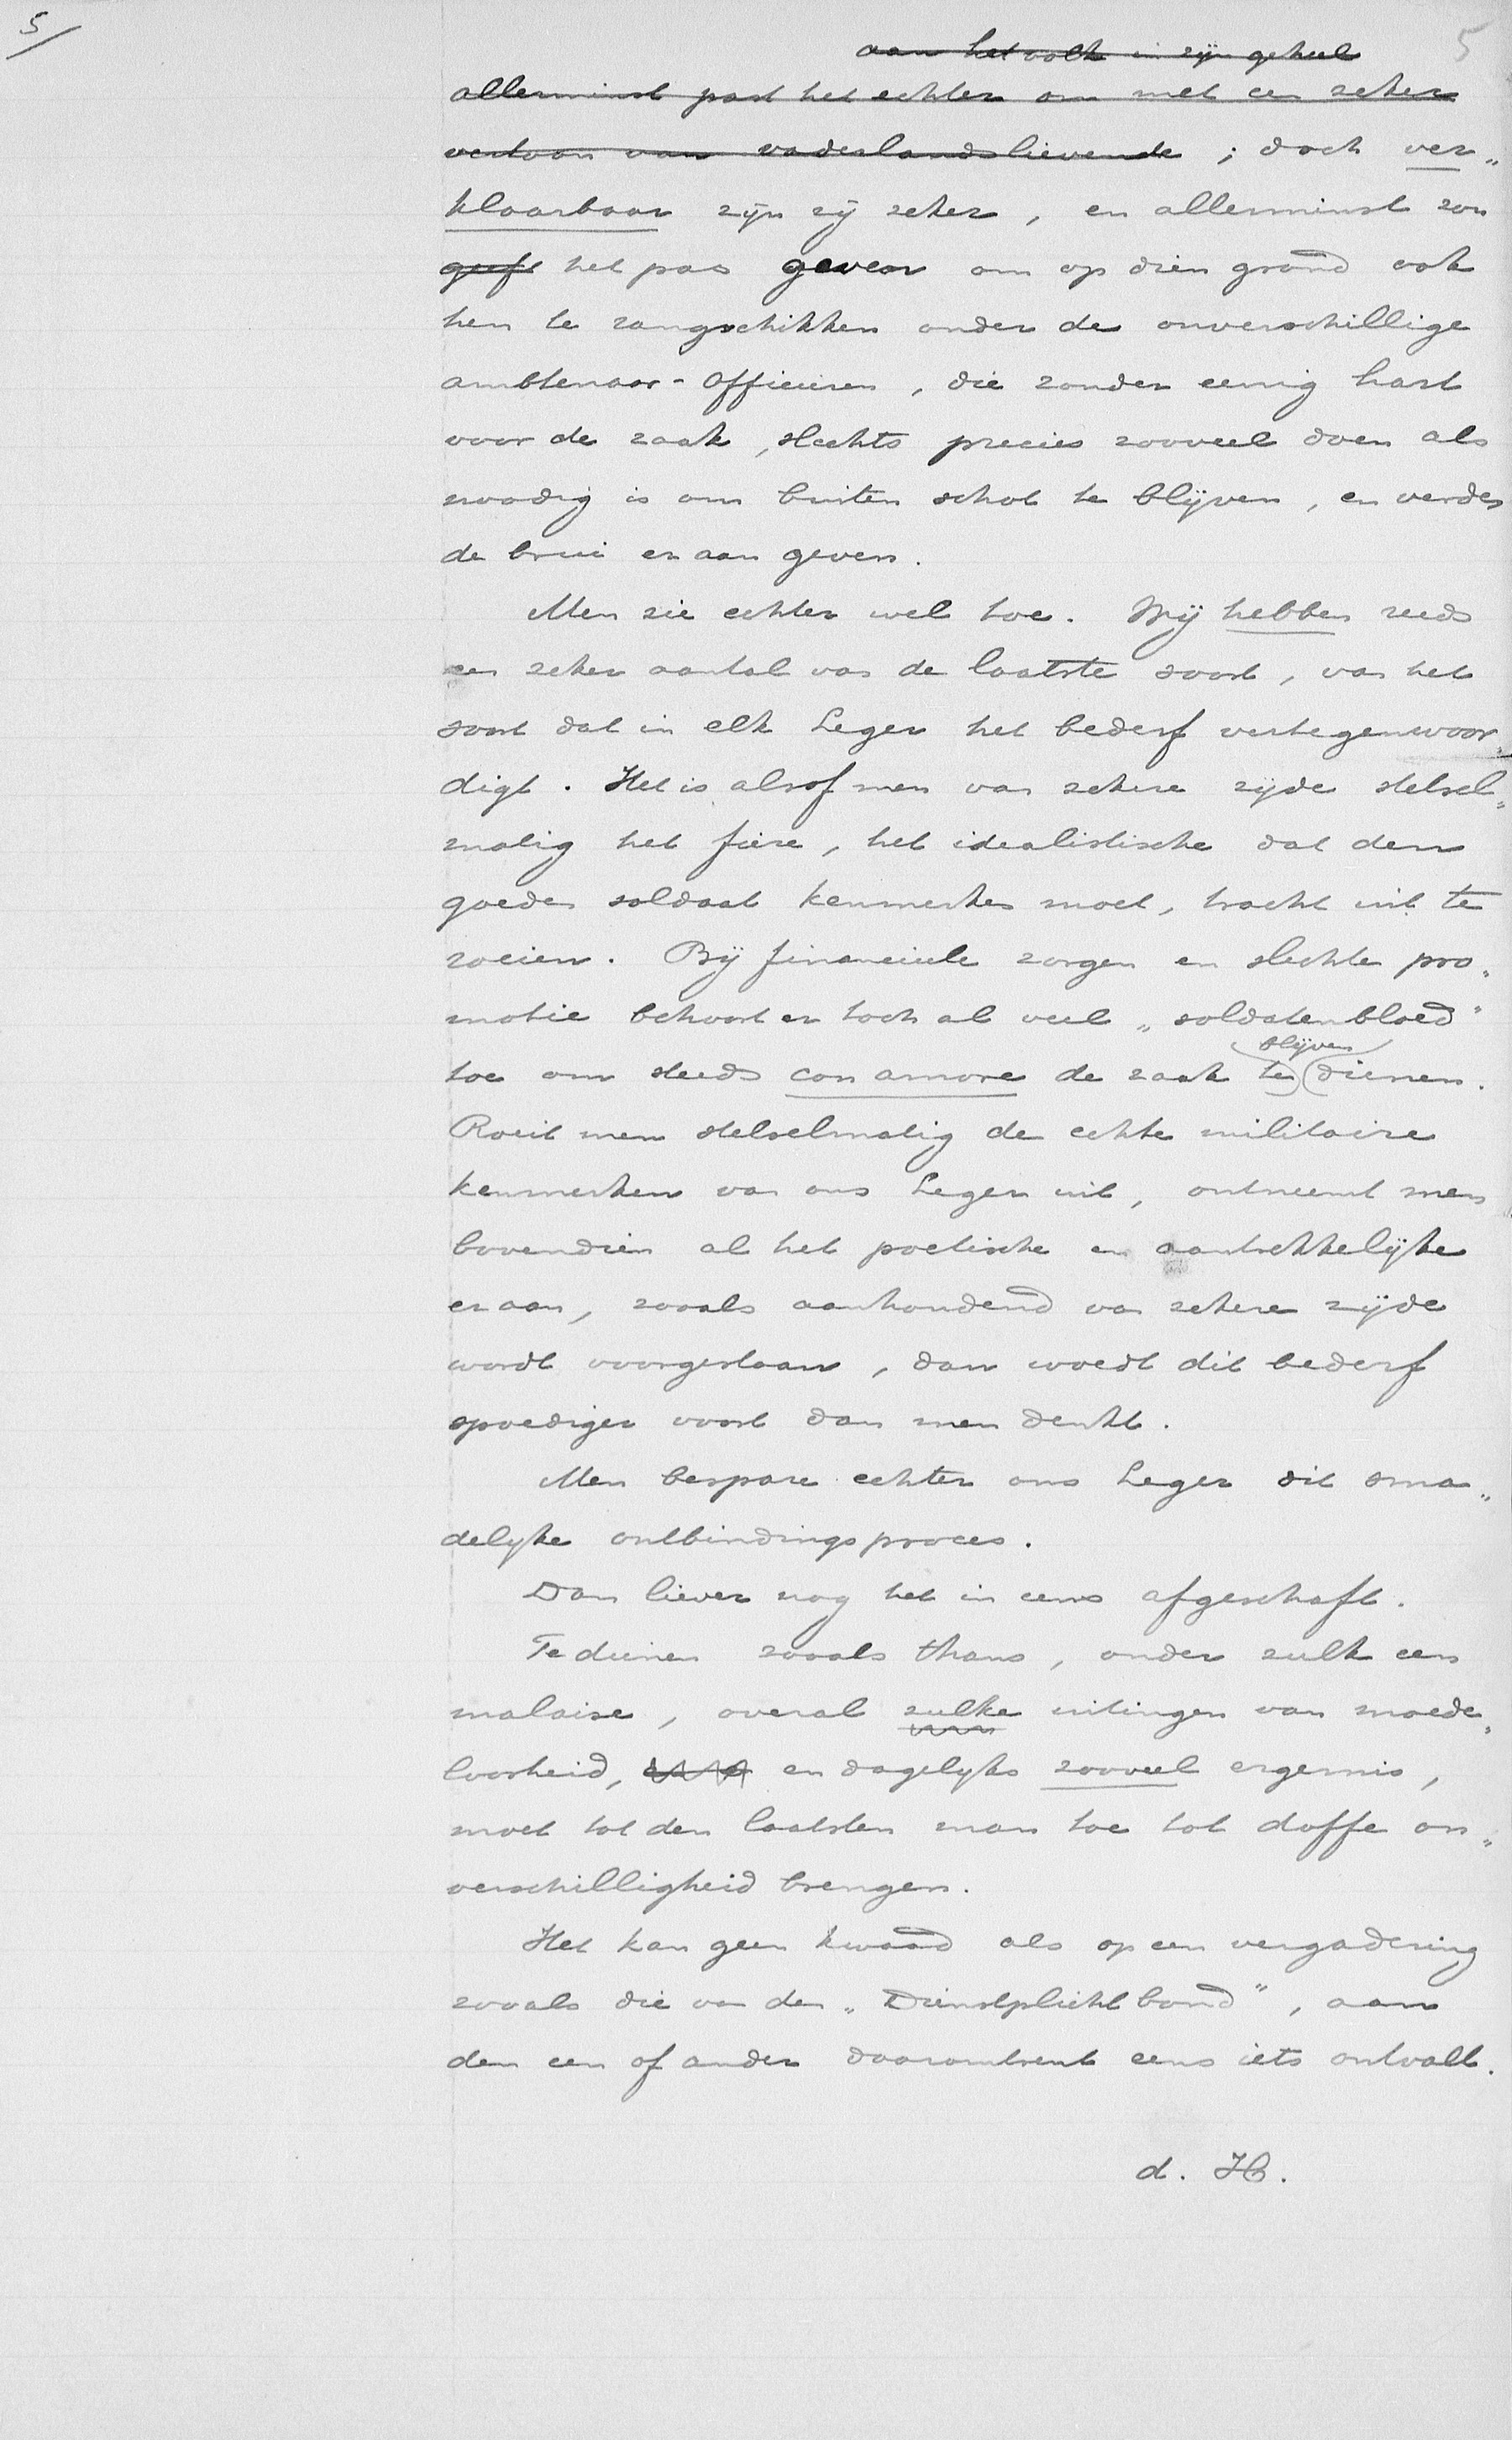 5/
5
aan het volk in zijn geheel
allerminst past het echter om met een zeker
vertoon van vaderlandslievende ; doch ver„
klaarbaar zijn zij zeker, en allerminst zou
geeft het pas geven om op dien grond ook
hen te rangschikken onder de onverschillige
ambtenaar-officieren, die zonder eenig hart
voor de zaak, slechts precies zooveel doen als
noodig is om buiten schot te blijven, en verder
de brui er aan geven.
Men zie echter wel toe. Wij hebben reeds
een zeker aantal van de laatste soort, van het
soort dat in elk Leger het bederf vertegenwoor„
digt. Het is alsof men van zekere zijde stelsel„
matig het fiere, het idealistische dat den
goeden soldaat kenmerken moet, tracht uit te
roeien. Bij financieele zorgen en slechte pro„
motie behoort er toch al veel „soldatenbloed"
blijven
toe om steeds con amore de zaak te dienen.
Roeit men stelselmatig de echte militaire
kenmerken van ons Leger uit, ontneemt men
bovendien al het poëtische en aantrekkelijke
er aan, zooals aanhoudend van zekere zijde
wordt voorgestaan, dan woedt dit bederf
spoediger voort dan men denkt.
Men bespare echter ons Leger dit sma„
delijke ontbindingsproces.
Dan liever nog het in eens afgeschaft.
Te dienen zooals thans, onder zulk een
malaise, overal zulke uitingen van moede„
loosheid, en dagelijks zooveel ergernis,
moet tot den laatsten man toe tot doffe on„
verschilligheid brengen.
Het kan geen kwaad als op een vergadering
zooals die van den „Dienstplichtbond", aan
den een of ander daaromtrent eens iets ontvalt.
d. H.